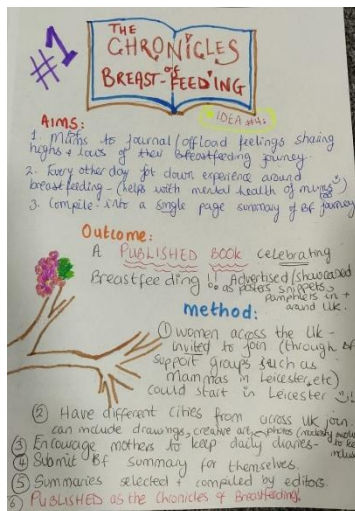 #1
THE
CHRONICLES
OF
BREAST-FEEDING
IDEA
AIMS:
1. Mums to journal/offload feelings sharing
highs + lows of their breastfeeding journey.
2. Every other day jot down experience around
breastfeeding - (helps with mental health of mums too)
3. Compile into a single page summary of BF journey
Outcome:
A PUBLISHED BOOK celebrating
Breastfeeding !! Advertised/showcased
as posters snippets,
pamphlets in +
around UK.
method:
① women across the UK -
invited to join (through BF
support groups such as
mammas in Leicester, etc)
could start in Leicester !
② Have different cities from across UK join.
can include drawings, creative art, photos (modesty
③ Encourage mothers to keep daily diaries-
④ Submit BF summary for themselves.
⑤ Summaries selected + compiled by editors.
⑥ PUBLISHED as the Chronicles of Breastfeeding